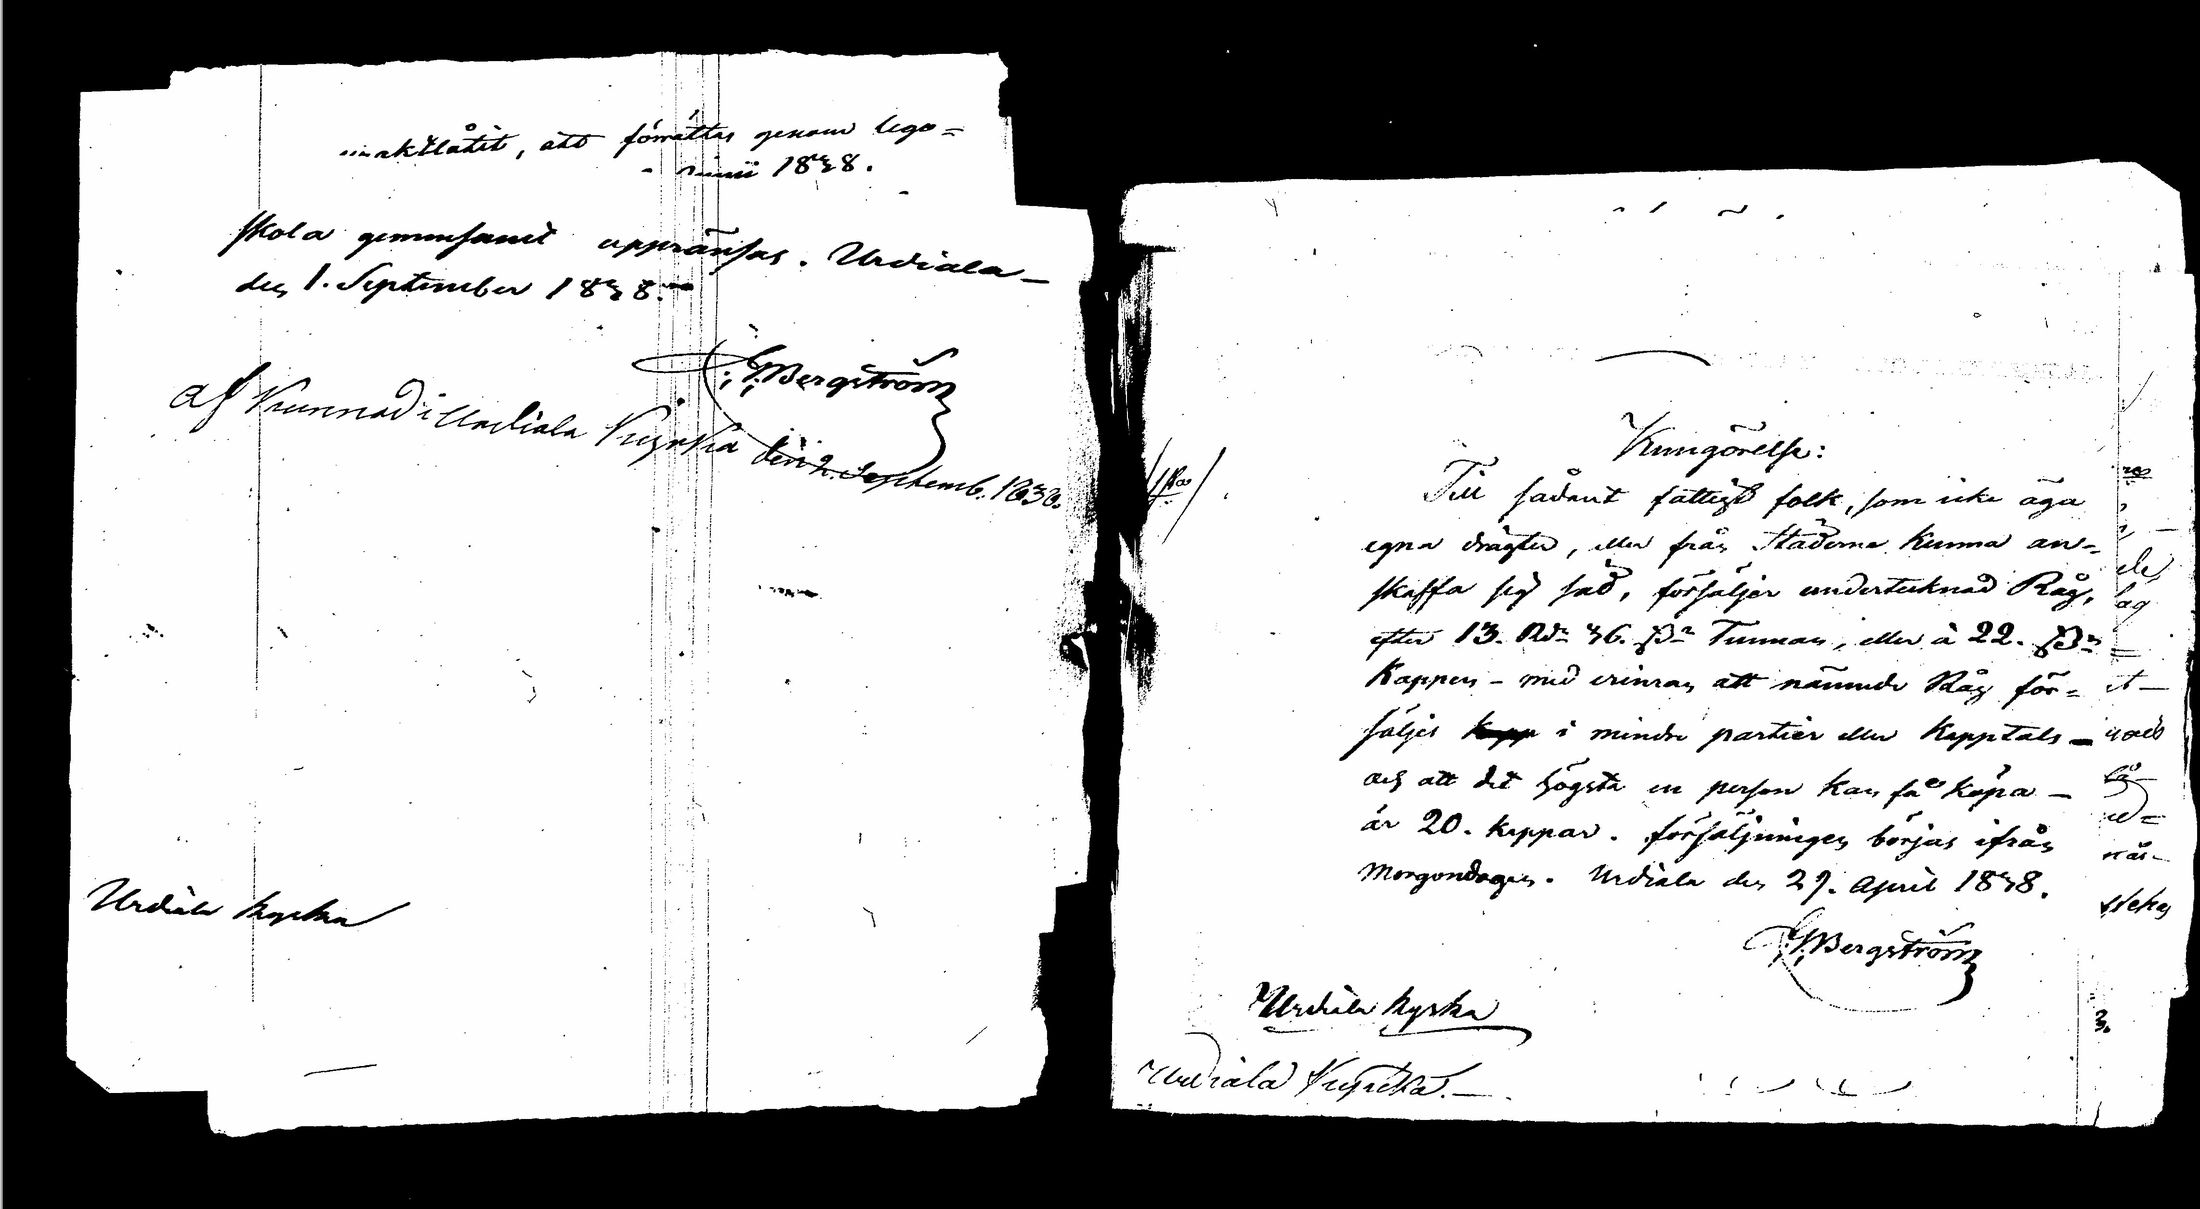 uraktlåtit, att förrättas genom lego=
Junii 1838.
skola gemensamt uppränsas. Urdiala
den 1. September 1838.
G:G:Bergström
af Kunnad i Urdiala Kyrka den 2. Septemb. 1838.
Urdiala kyrka
Kungörelse:
Till sådant fattigt folk, som icke äga
egna drägter, eller från Städerne kunna an-
skaffa sig säd, försäljer undertecknad Råg,
efter 13. Rdr 36. Tunnan, eller à 22.
Kappen - med erinran att nämnde Råg för=
säljes kapp i mindre partier eller kapptals
och att det högsta en person kan få köpa
är 20. kappar. försäljningen börjas ifrån
morgondagen. Urdiala den 29. April 1838.
G:G:Bergström
Urdiala kyrka
Urdiala Kyrcka.